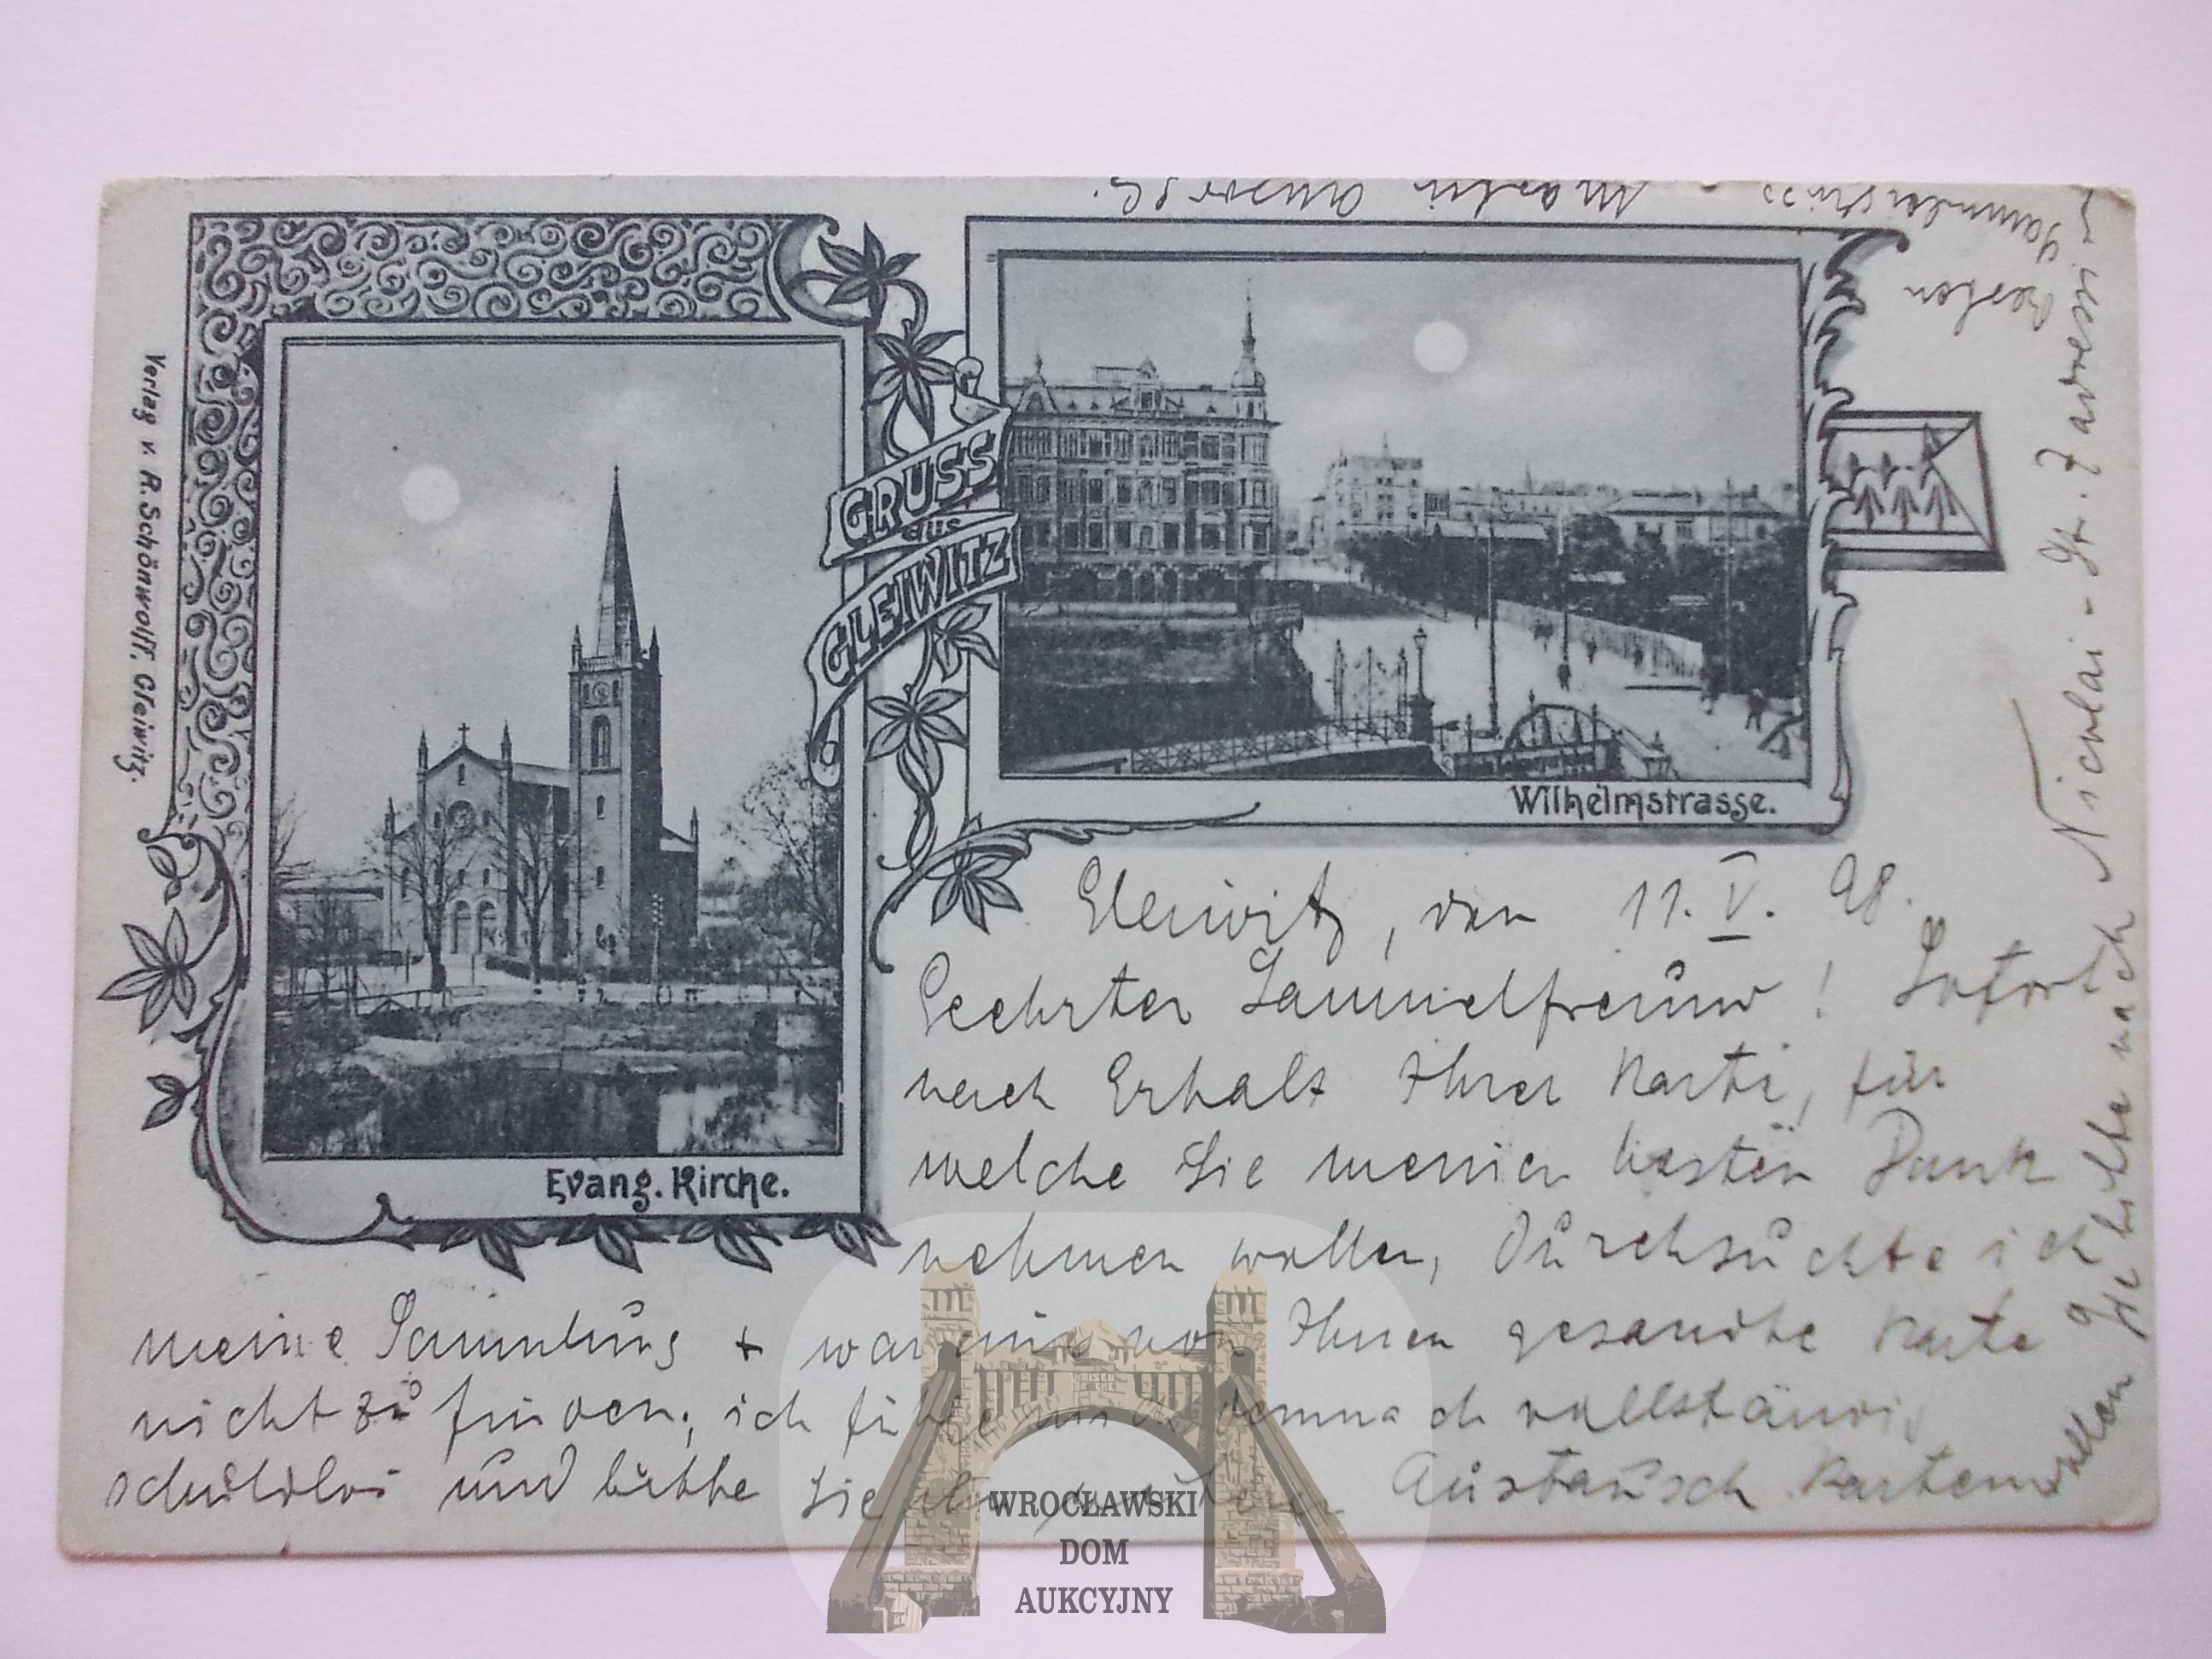 Verlag v. R. Schönwolff, Gleiwitz.
GRUSS
aus
GLEIWITZ
Evang. Kirche.
Wilhelmstrasse.
Gleiwitz, den 11. V. 98.
Geehrter Sammelfreund! Sofort
nach Erhalt Ihrer Karte, für
welche Sie meinen besten Dank
nehmen wollen, durchsuchte ich
meine Sammlung + war von Ihnen gesandte Karte
nicht zu finden; ich fühle mich demnach vollständig
schuldlos und bitte Sie Austausch Karten
wollen Sie bitte nach Nicolai-St. 7 adressiren
Besten
Sammlergruss Martin
WROCŁAWSKI
DOM
AUKCYJNY